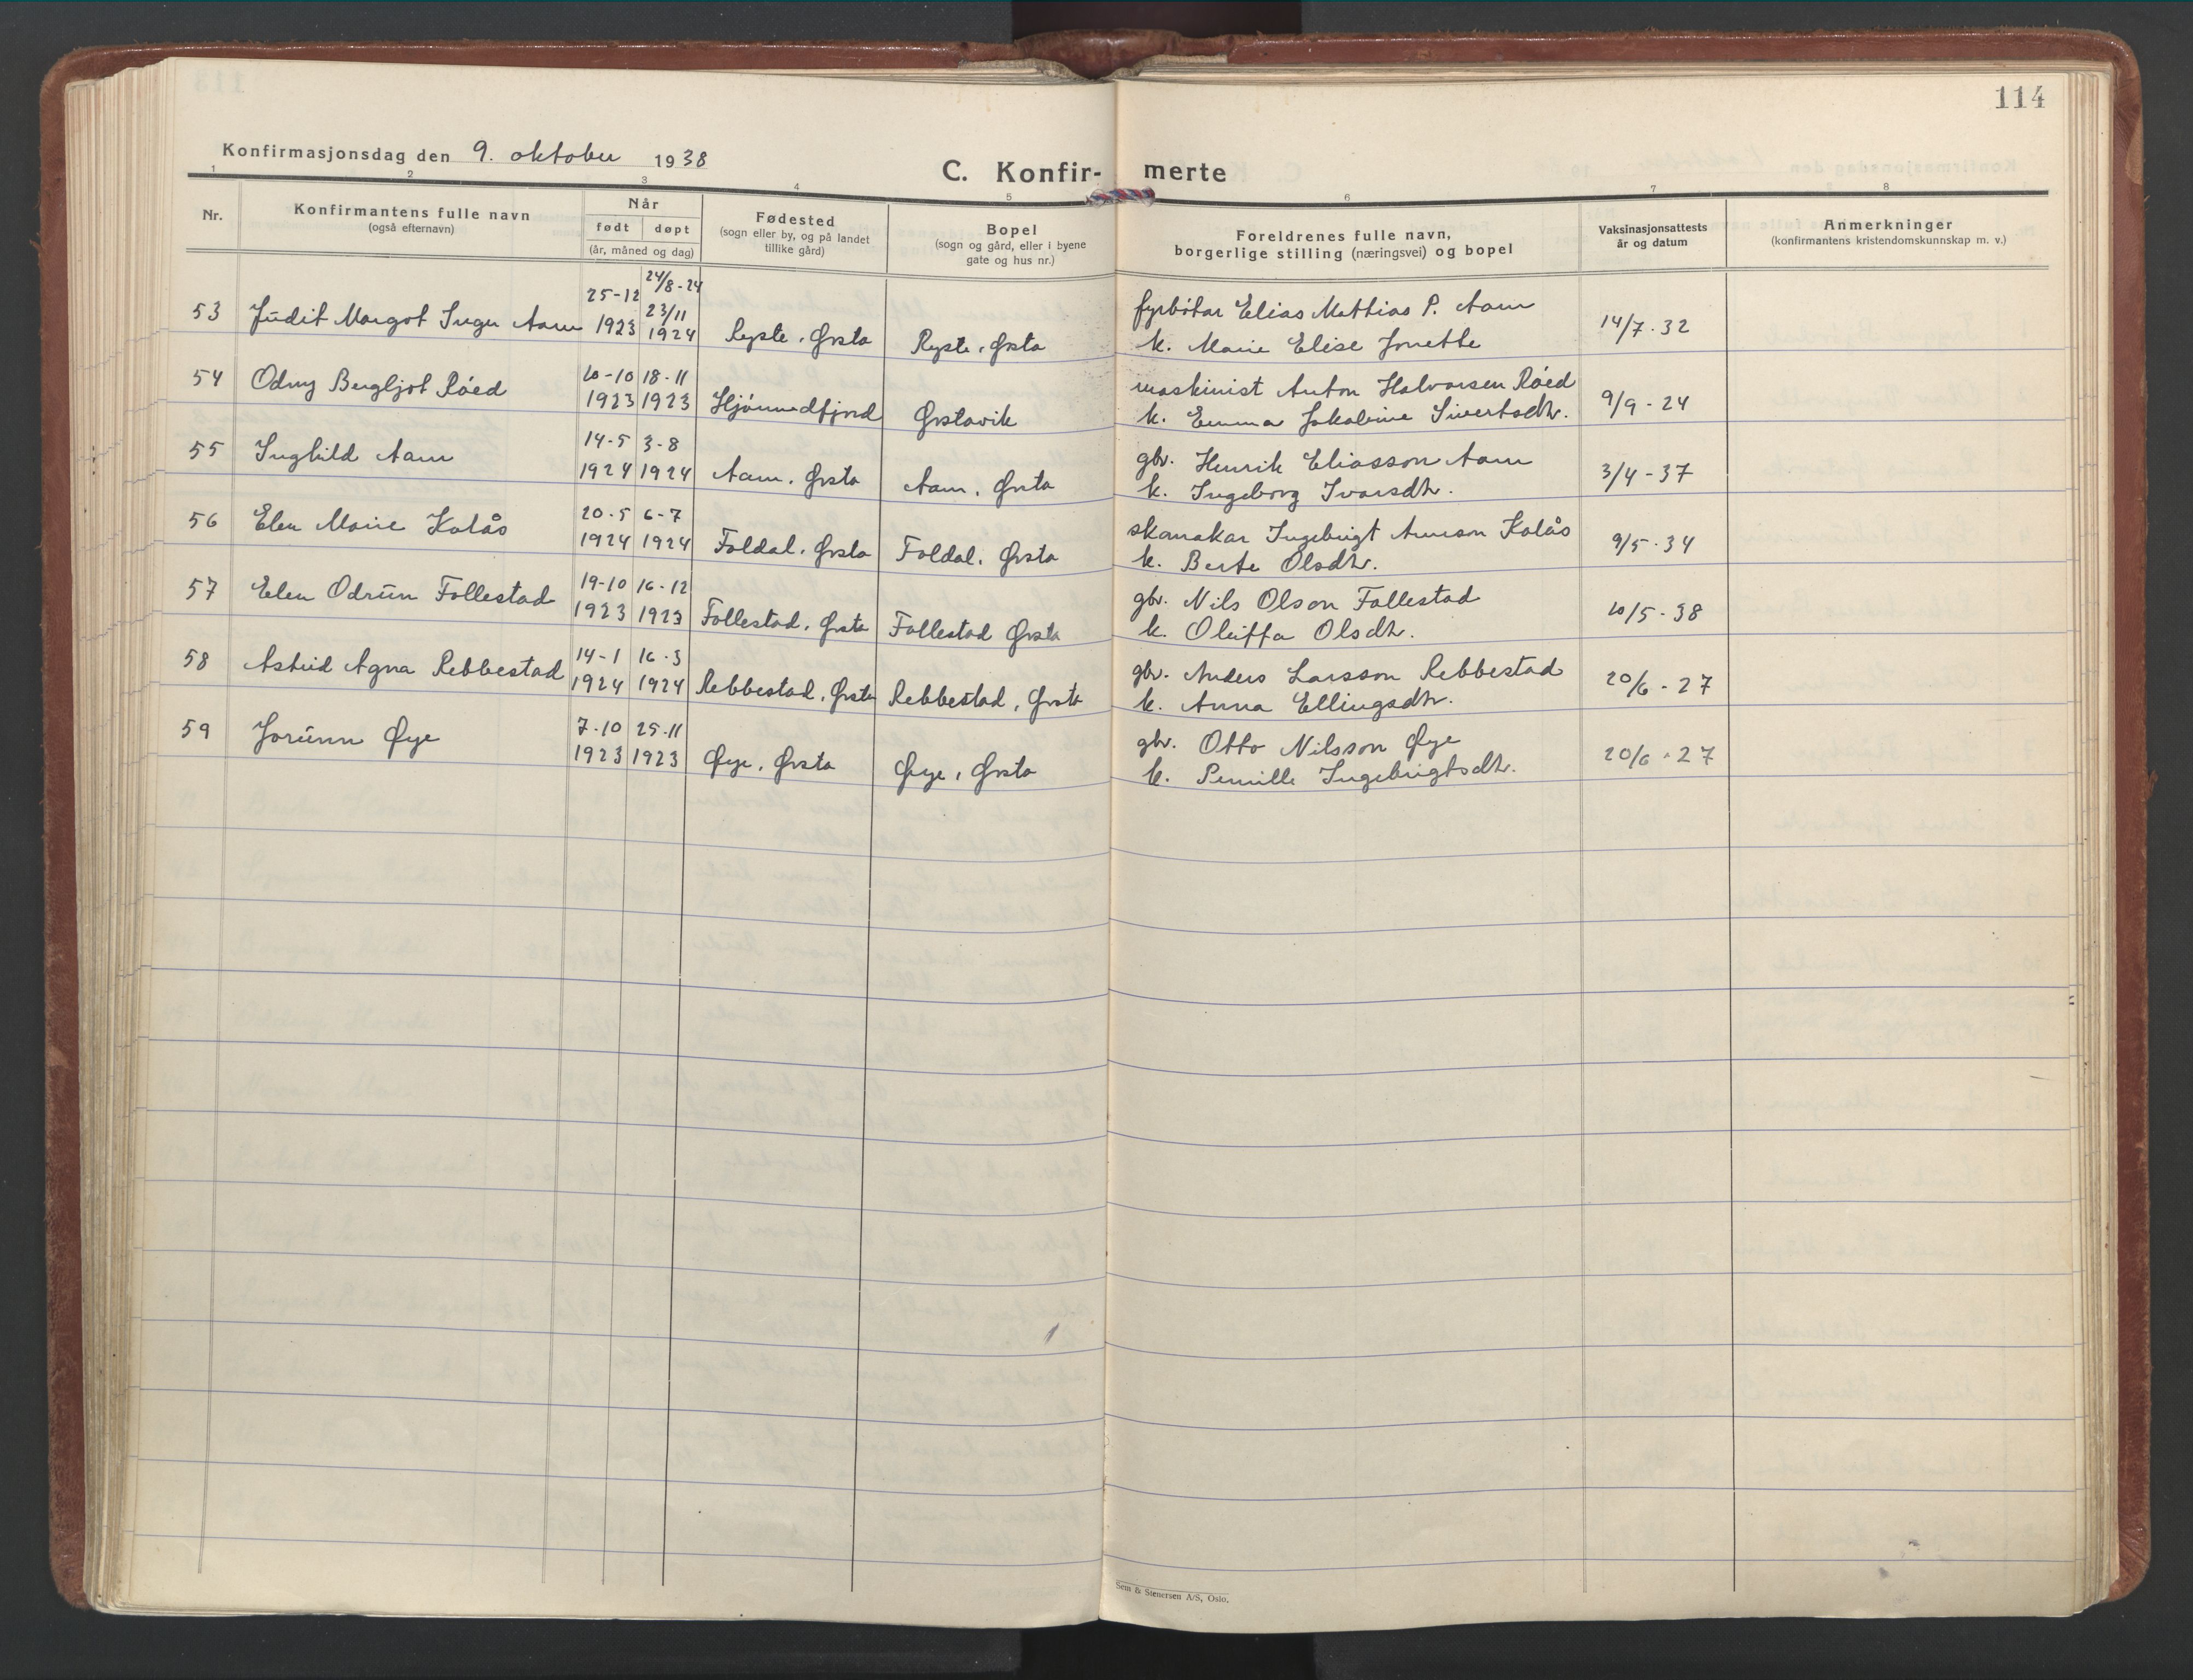 114
Konfirmasjonsdag den 9. oktober 1938
C. Konfir- merte
1 2 3 4 5 6 7 8
Nr.
Konfirmantens fulle navn
(også efternavn)
Når
født døpt
(år, måned og dag)
Fødested
(sogn eller by, og på landet
tillike gård)
Bopel
(sogn og gård, eller i byene
gate og hus nr.)
Foreldrenes fulle navn,
borgerlige stilling (næringsvei) og bopel
Vaksinasjonsattests
år og datum
Anmerkninger
(konfirmantens kristendomskunnskap m. v.)
24/8-24
25-12 23/11 fyrbøtar Elias Mattias P. Aam
53 Judit Margot Inger Aam 1923 1924 Ryste, Ørsta Ryste, Ørsta k. Marie Elise Jonette 14/7.32
54 Odny Bergljot Røed 10-10 18-11 maskinist Anton Halvorsen Røed
1923 1923 Hjørundfjord Ørstavik k. Emma Jakobine Sivertsdtr. 9/9-24
55 Inghild Aam 14-5 3-8 gbr. Henrik Eliasson Aam
1924 1924 Aam, Ørsta Aam, Ørsta k. Ingeborg Ivarsdtr. 3/4-37
56 Elen Marie Kolås 20-5 6-7 skomakar Ingebrigt Arneson Kolås
1924 1924 Foldal, Ørsta Foldal, Ørsta k. Berte Olsdtr. 9/5-34
57 Elen Odrun Follestad 19-10 16-12 gbr. Nils Olson Follestad
1923 1923 Follestad, Ørsta Follestad Ørsta k. Oleiffa Olsdtr. 10/5-38
58 Astrid Agna Rebbestad 14-1 16-3 gbr. Anders Larsson Rebbestad
1924 1924 Rebbestad, Ørsta Rebbestad, Ørsta k. Anna Ellingsdtr. 20/6-27
59 Jorunn Øye 7-10 25-11 gbr. Otto Nilsson Øye
1923 1923 Øye, Ørsta Øye, Ørsta k. Pernille Ingebrigtsdtr. 20/6-27
Sem & Stenersen A/S, Oslo.